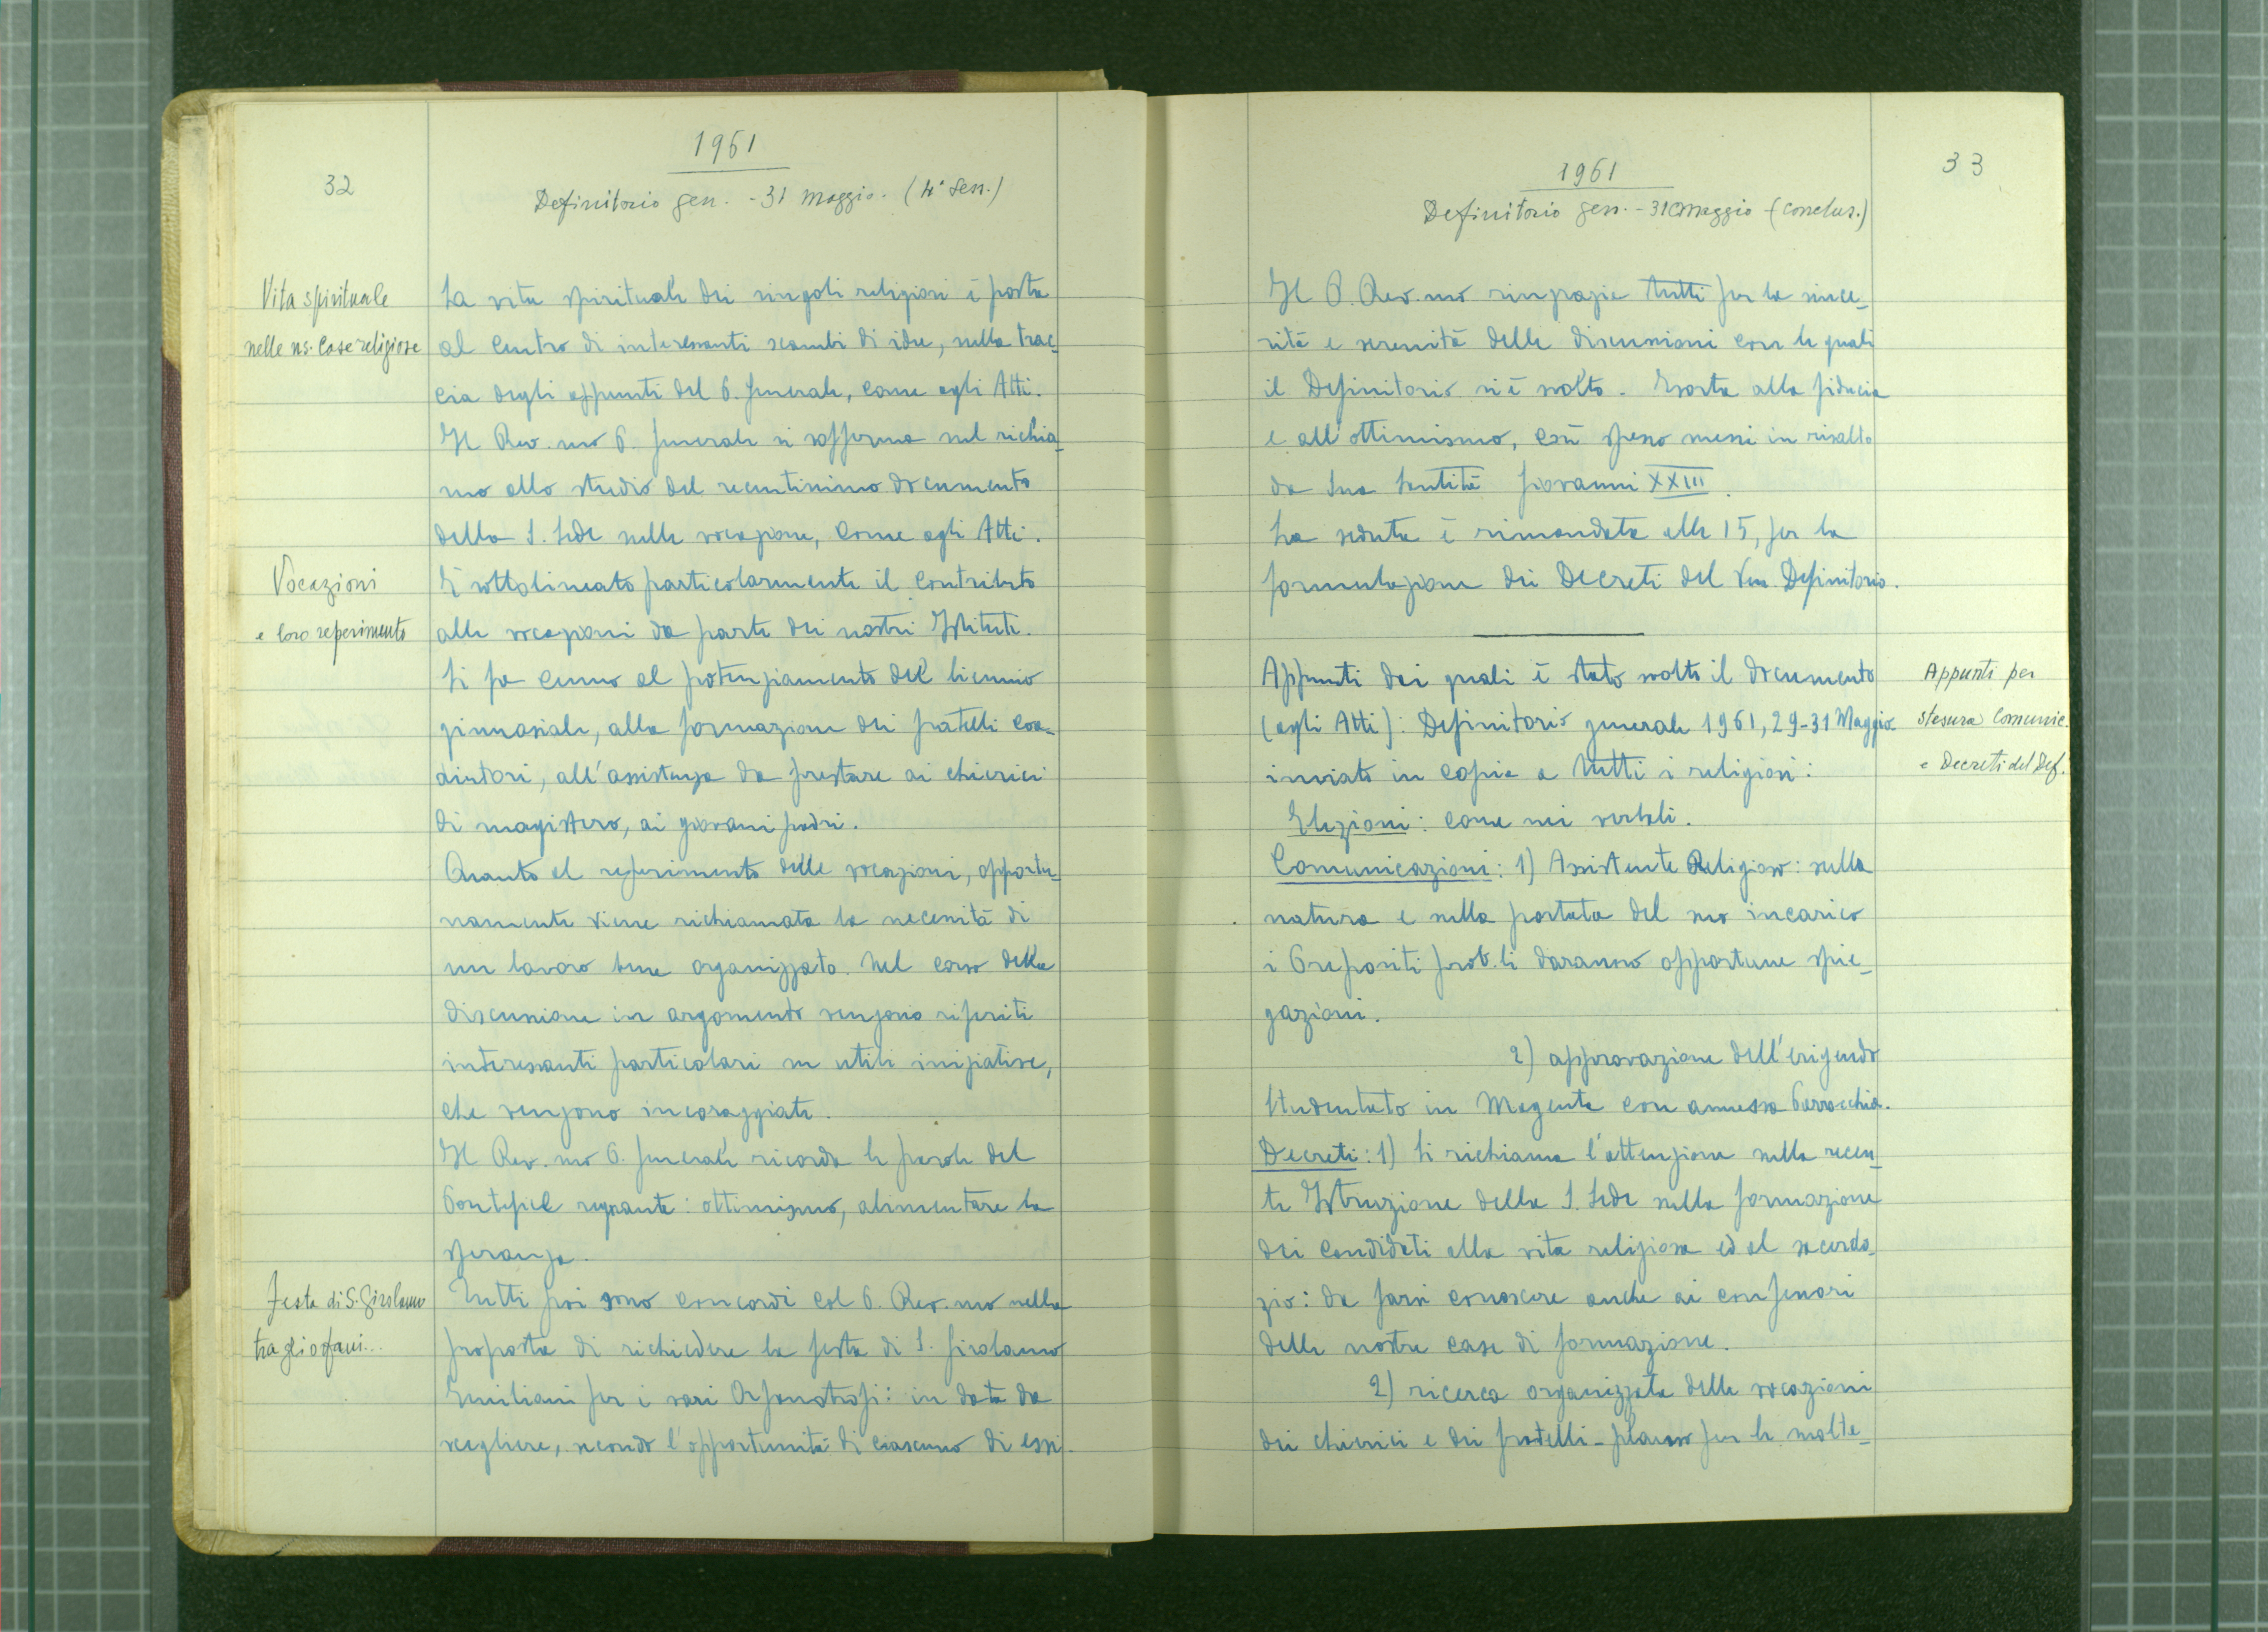 32
1961
Definitorio gen. - 31 Maggio. (4ª Sess.)
Vita spirituale
nelle ns. Case religiose
La vita spirituale dei singoli religiosi è posta
al centro di interessanti scambi di idee, sulla trac-
cia degli appunti del P. Generale, come agli Atti.
Il Rev.mo P. Generale si sofferma sul richia-
mo allo studio del recentissimo documento
della S. Sede sulle vocazione, come agli Atti.
Vocazioni
e loro reperimento
È sottolineato particolarmente il contributo
alle vocazioni da parte dei nostri Istituti.
Si fa cenno al potenziamento del biennio
ginnasiale, alla formazione dei fratelli coa-
diutori, all'assistenza da prestare ai chierici
di magistero, ai giovani padri.
Quanto al reperimento delle vocazioni, opportu-
namente viene richiamata la necessità di
un lavoro bene organizzato. Nel corso della
discussione in argomento vengono riferiti
interessanti particolari su utili iniziative,
che vengono incoraggiate.
Il Rev.mo P. Generale ricorda le parole del
Pontefice regnante: ottimismo, alimentare la
speranza.
Festa di S. Girolamo
tra gli orfani...
Tutti poi sono concordi col P. Rev.mo nella
proposta di richiedere la festa di S. Girolamo
Emiliani per i vari Orfanotrofi: in data da
scegliere, secondo l'opportunità di ciascuno di essi.
33
1961
Definitorio gen. - 31 Maggio (conclus.)
Il P. Rev.mo ringrazia tutti per la since-
rità e serenità delle discussioni con le quali
il Definitorio si è svolto. Esorta alla fiducia
e all'ottimismo, così spesso messi in risalto
da Sua Santità Giovanni XXIII.
La seduta è rimandata alle 15, per la
formulazione dei Decreti del Ven. Definitorio.
Appunti per
stesura Comunic.
e Decreti del Def.
Appunti dai quali è stato svolto il documento
(agli Atti): Definitorio generale 1961, 29-31 Maggio
inviato in copia a tutti i religiosi:
Elezioni: come nei verbali.
Comunicazioni: 1) Assistente Religioso: sulla
natura e sulla portata del suo incarico
i Prepositi prov.li daranno opportune spie-
gazioni.
2) approvazione dell'erigendo
Studentato in Magenta con annessa Parrocchia.
Decreti: 1) Si richiama l'attenzione sulla recen-
te Istruzione della S. Sede sulla formazione
dei candidati alla vita religiosa ed al sacerdo-
zio: da farsi conoscere anche ai confessori
delle nostre case di formazione.
2) ricerca organizzata delle vocazioni
dei chierici e dei fratelli - plauso per le molte-